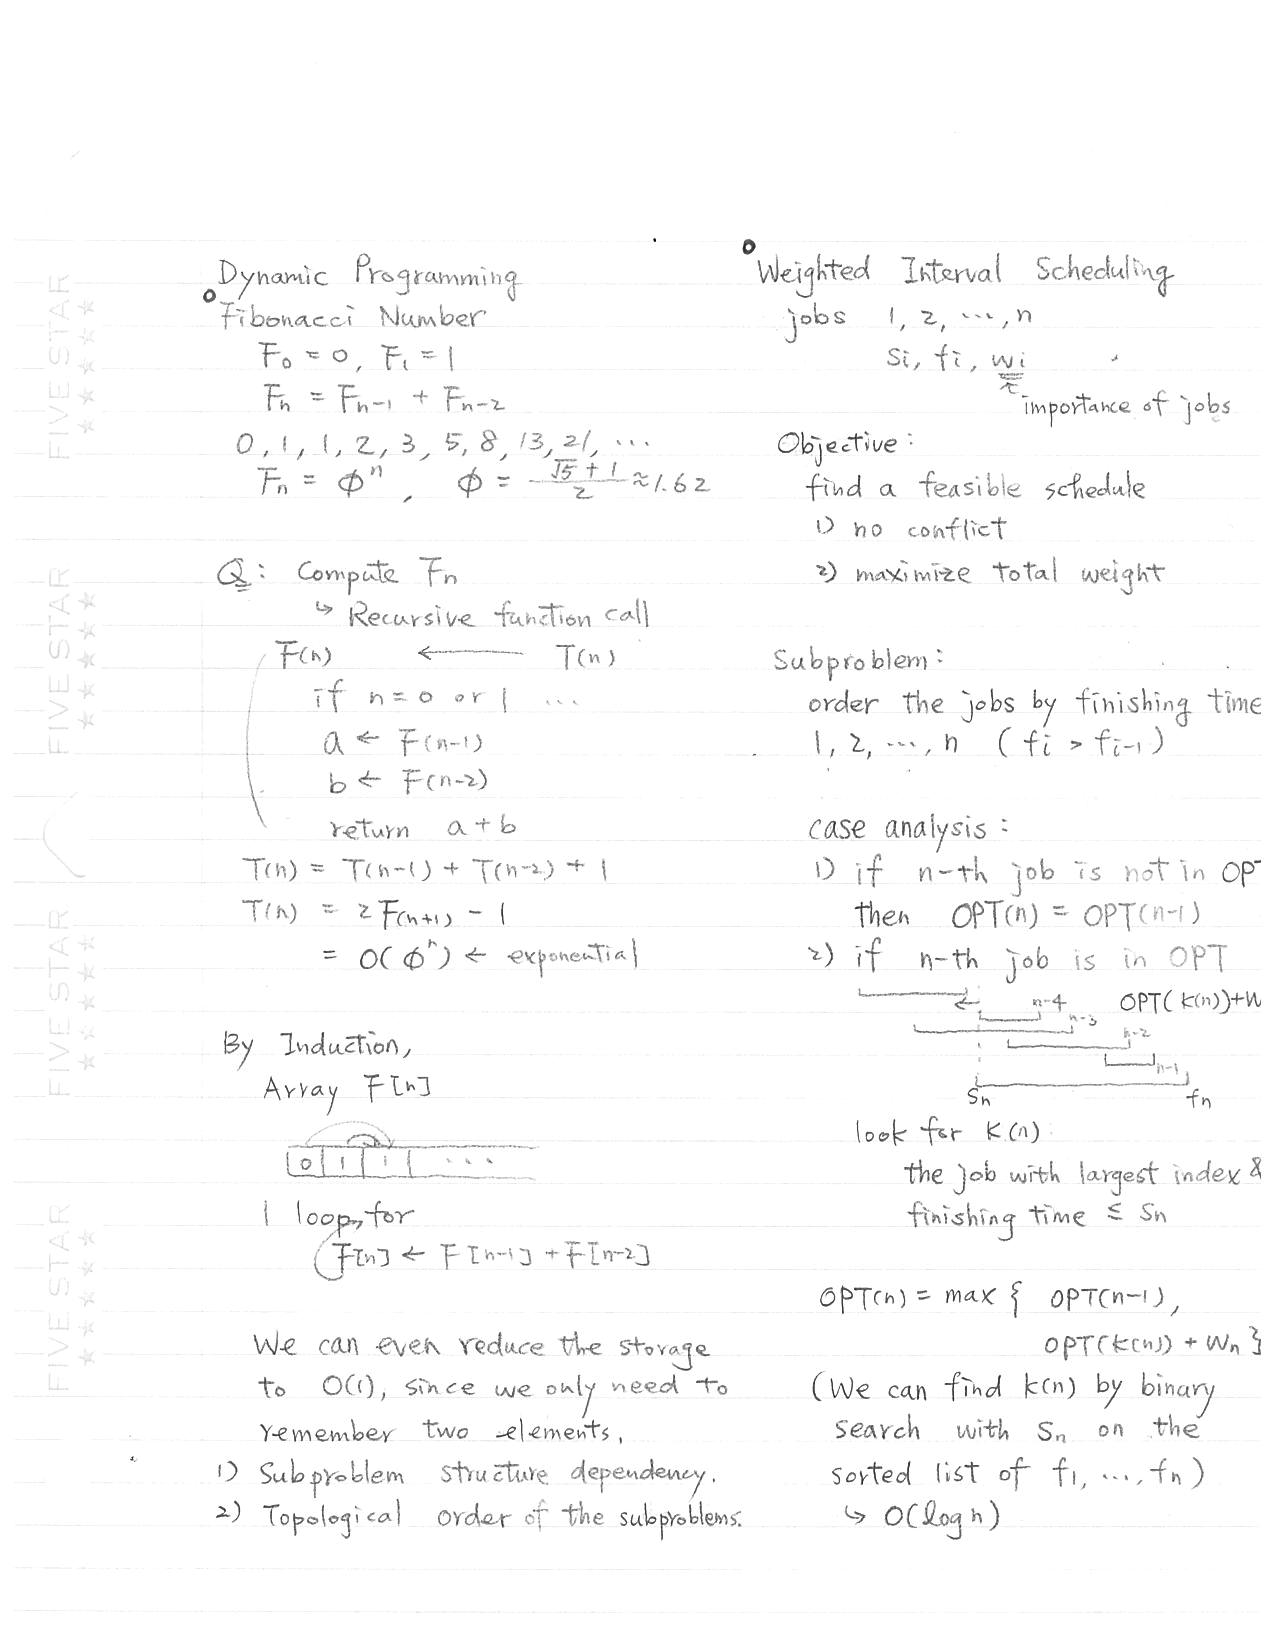 Dynamic Programming
Fibonacci Number
F₀ = 0, F₁ = 1
Fₙ = Fₙ₋₁ + Fₙ₋₂
0, 1, 1, 2, 3, 5, 8, 13, 21, ...
Fₙ = ϕⁿ, ϕ = (√5 + 1)/2 ≈ 1.62
Q: Compute Fₙ
↳ Recursive function call
F(n) ← T(n)
if n = 0 or 1 ...
a ← F(n-1)
b ← F(n-2)
return a + b
T(n) = T(n-1) + T(n-2) + 1
T(n) = 2 F(n+1) - 1
= O(ϕⁿ) ← exponential
By Induction,
Array F[n]
0 1 1 ...
1 loop, for
F[n] ← F[n-1] + F[n-2]
We can even reduce the storage
to O(1), since we only need to
remember two elements.
1) Subproblem structure dependency.
2) Topological order of the subproblems.
Weighted Interval Scheduling
jobs 1, 2, ..., n
si, fi, wi
importance of jobs
Objective:
find a feasible schedule
1) no conflict
2) maximize total weight
Subproblem:
order the jobs by finishing time
1, 2, ..., n (fi > fi-1)
case analysis:
1) if n-th job is not in OPT
then OPT(n) = OPT(n-1)
2) if n-th job is in OPT
OPT(k(n))+W
n-4
n-3
n-2
n-1
Sn fn
look for k(n)
the job with largest index &
finishing time ≤ Sn
OPT(n) = max { OPT(n-1),
OPT(k(n)) + Wn }
(We can find k(n) by binary
search with Sn on the
sorted list of f1, ..., fn)
↳ O(log n)
FIVE STAR
FIVE STAR
FIVE STAR
FIVE STAR